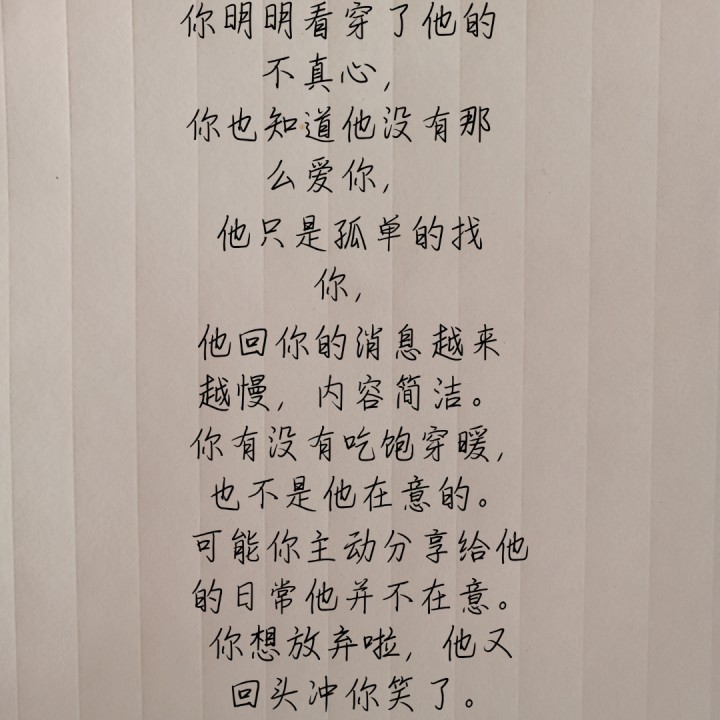 你明明看穿了他的
不真心，
你也知道他没有那
么爱你，
他只是孤单的找
你，
他回你的消息越来
越慢，内容简洁。
你有没有吃饱穿暖，
也不是他在意的。
可能你主动分享给他
的日常他并不在意。
你想放弃啦，他又
回头冲你笑了。